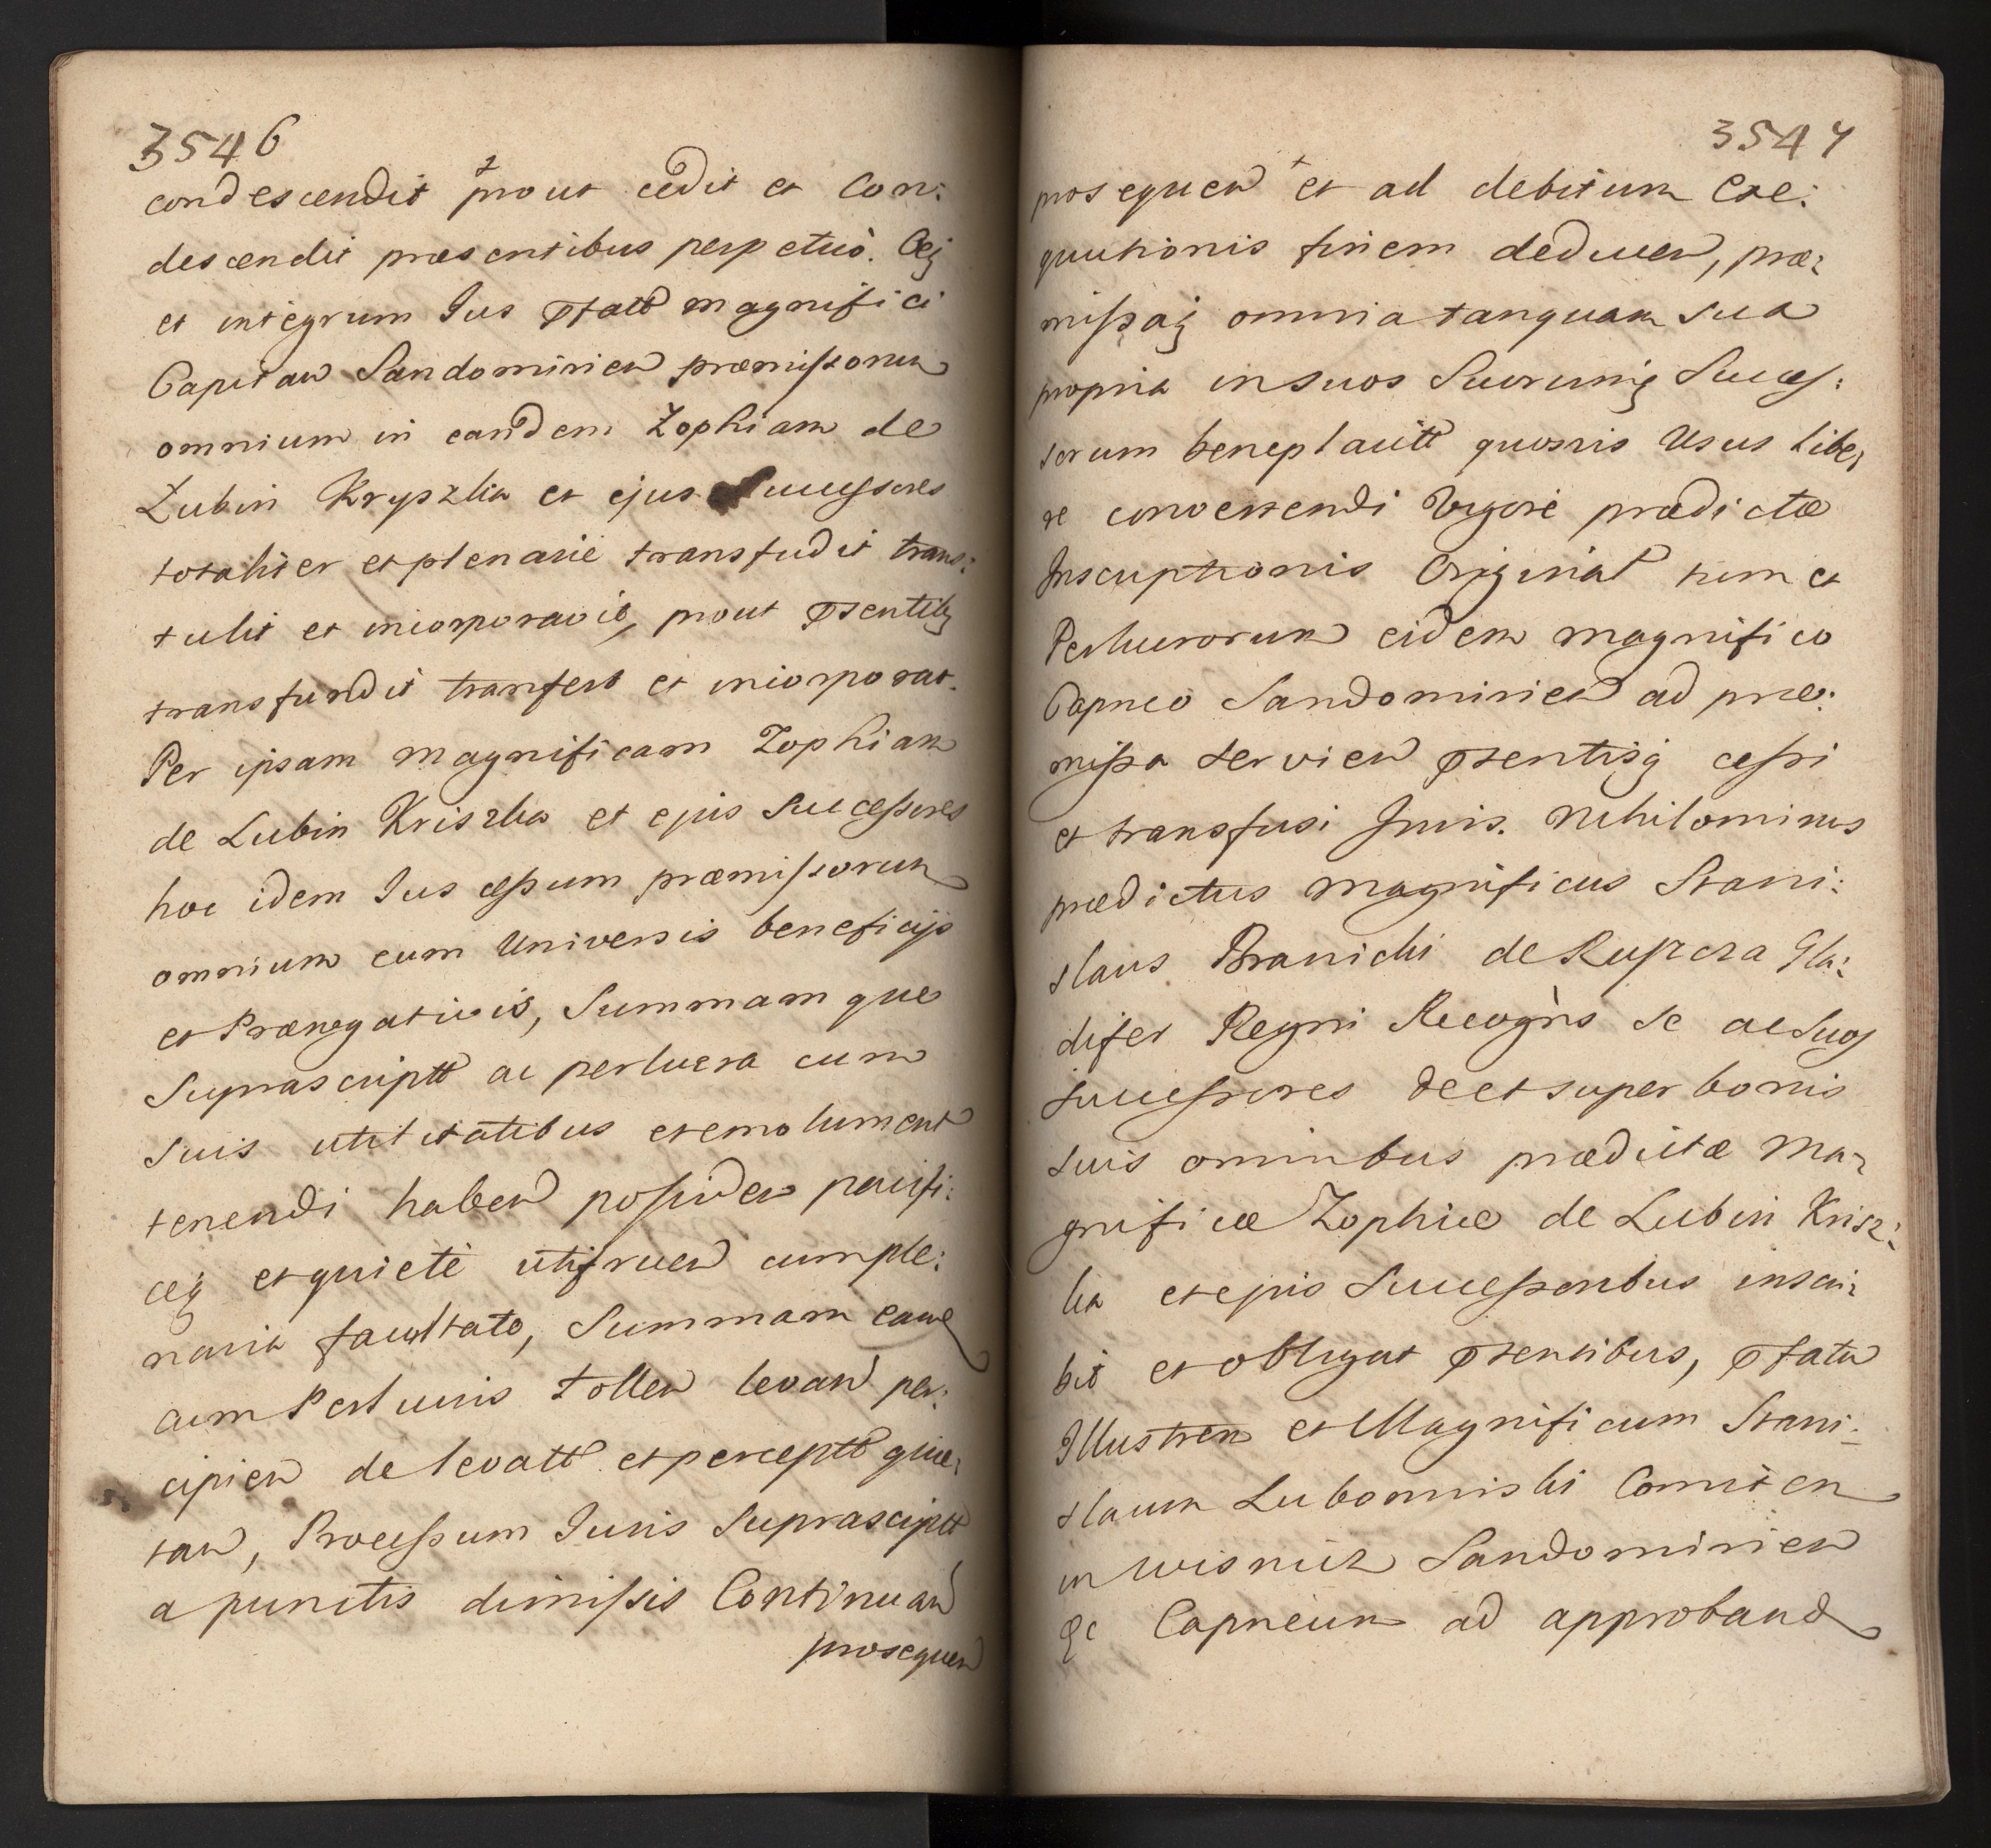 3546
condescendit prout cedit et Con:
descendit præsentibus perpetuò. Oēq
et integrum Jus pfatt magnifici
Capitan Sandomirien præmissorum
omnium in eandem Zophiam de
Lubin Kryszlia et ejus Successores
totaliter et plenarie transfudit trans:
tulit et incorporavit, prout psentibq
transfundit transfert et incorporat.
Per ipsam magnificam Zophiam
de Lubin Kriszlia et ejus Successores
hoc idem Jus cessum præmissorum
omnium cum Universis beneficijs
et Prærogativis, Summam que
Suprascriptt ac perlucra cum
suis utilitatibus et emolument
tenendi haben possiden pacifi:
ceq et quiete utifruen cum ple:
naria facultate, Summam eam
cum Perlucris tollen levan per:
cipien de levatt et perceptt quie:
tan, Processum Juris Suprascriptt
a punctis dimissis Continuan
prosequen
3547
prosequen et ad debitum Exe:
quutionis finem deducen, præ:
missaq omnia tanquam sua
propria in suos Suorumq Succes:
sorum beneplacitt quosvis Usus libe:
re convertendi Vigore prædictæ
Inscriptionis Original tum et
Perlucrorum eidem magnifico
Capneo Sandomirien ad præ:
missa servien psentisq cessi
et transfusi Juris. Nihilominus
prædictus magnificus Stani:
slaus Branichi de Ruszcza Gla:
difer Regni Recogns se ac Suos
Successores de et super bonis
suis omnibus prædictæ Ma:
gnificæ Zophiæ de Lubin Krisz:
lia et ejus Successoribus inscri:
bit et obligat psentibus, pfatum
Illustrem et Magnificum Stani:
slaum Lubomirski Comitem
in Wisnicz Sandomirien
&c Capneum ad approband